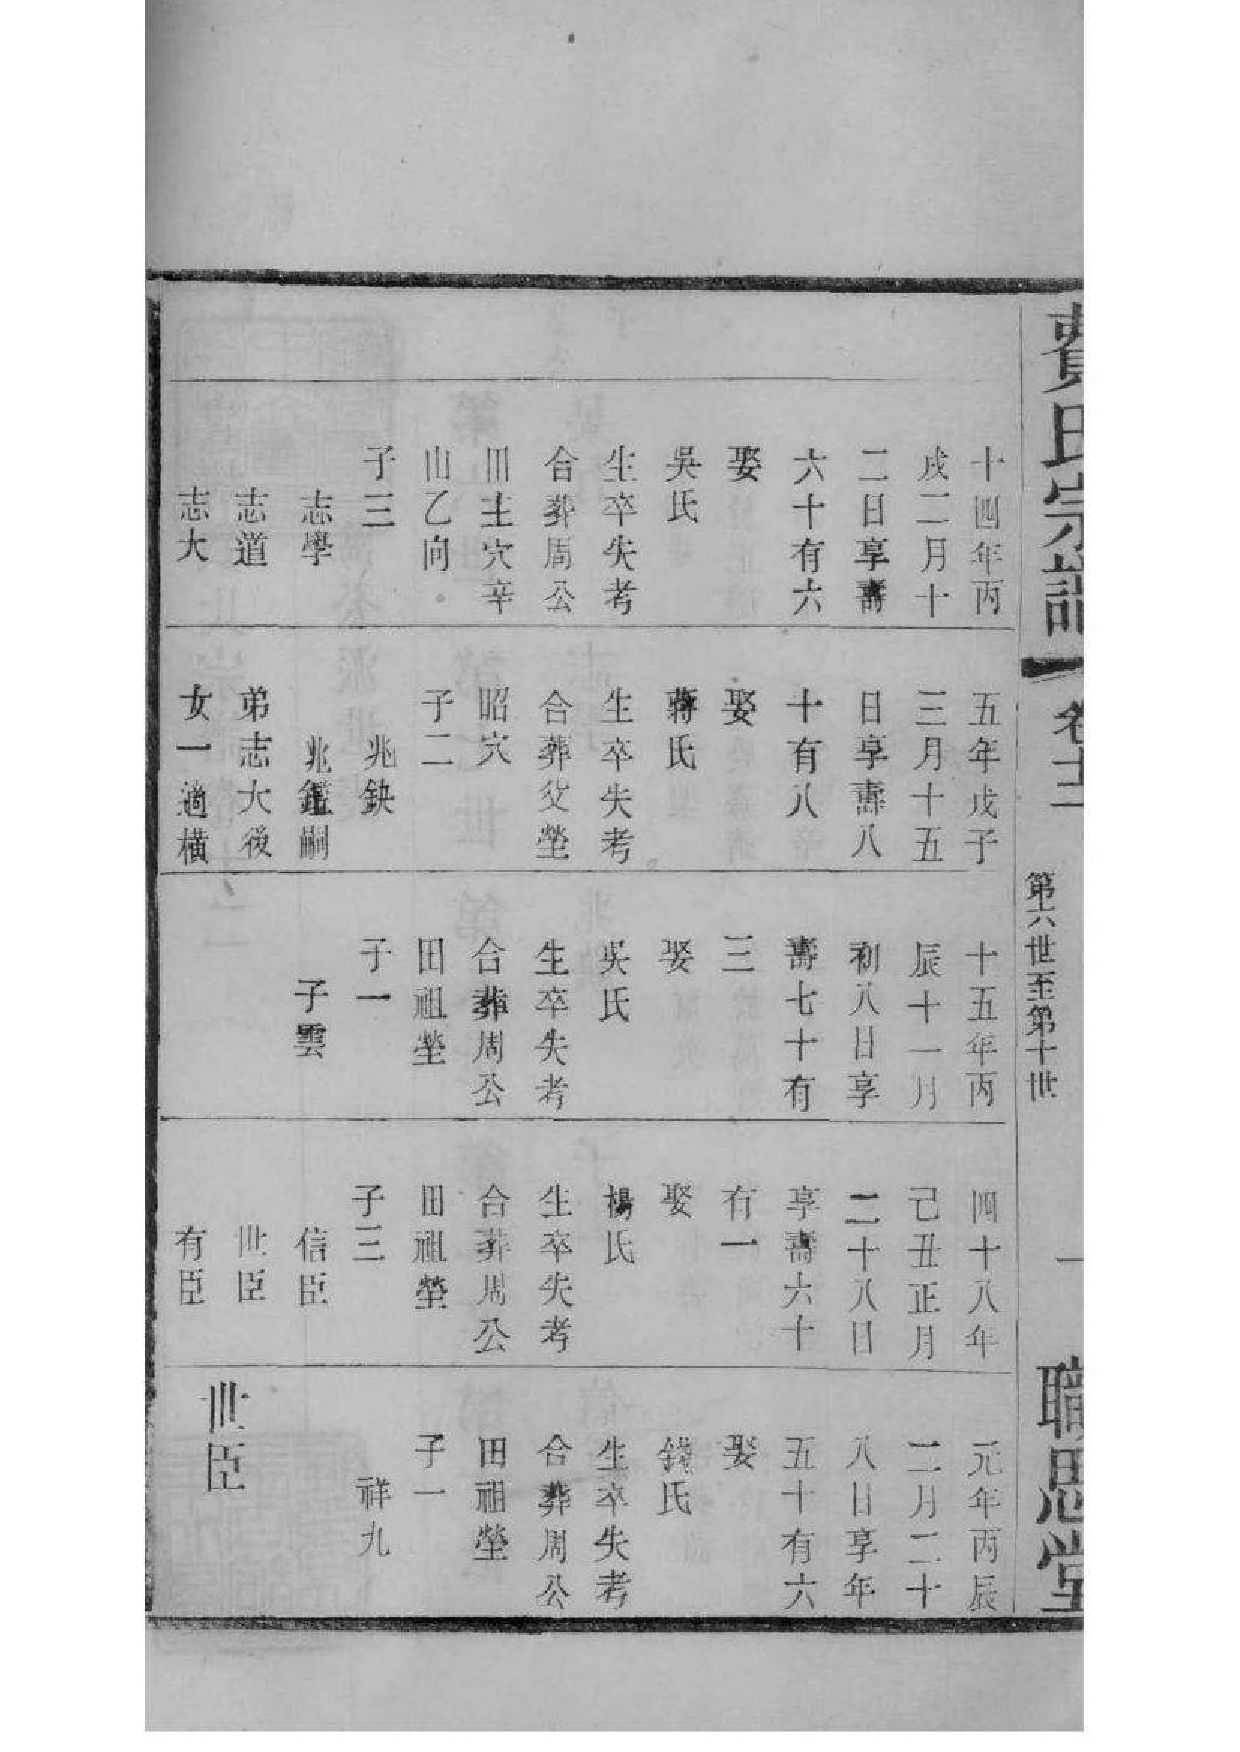 費氏宗譜
卷十二
第六世至第十世
一
職思堂
十四年丙
戌二月十
二日享壽
六十有六
娶
吳氏
生卒失考
合葬周公
田主穴辛
山乙向。
子三
志學
志道
志大
五年戊子
三月十五
日享壽八
十有八
娶
蔣氏
生卒失考
合葬父塋
昭穴
子二
兆鈌
兆鑑嗣
弟志大後
女一適橫
十五年丙
辰十一月
初八日享
壽七十有
三
娶
吳氏
生卒失考
合葬周公
田祖塋
子一
子雲
四十八年
己丑正月
二十八日
享壽六十
有一
娶
楊氏
生卒失考
合葬周公
田祖塋
子三
信臣
世臣
有臣
元年丙辰
二月二十
八日享年
五十有六
娶
錢氏
生卒失考
合葬周公
田祖塋
子一
祥九
世臣